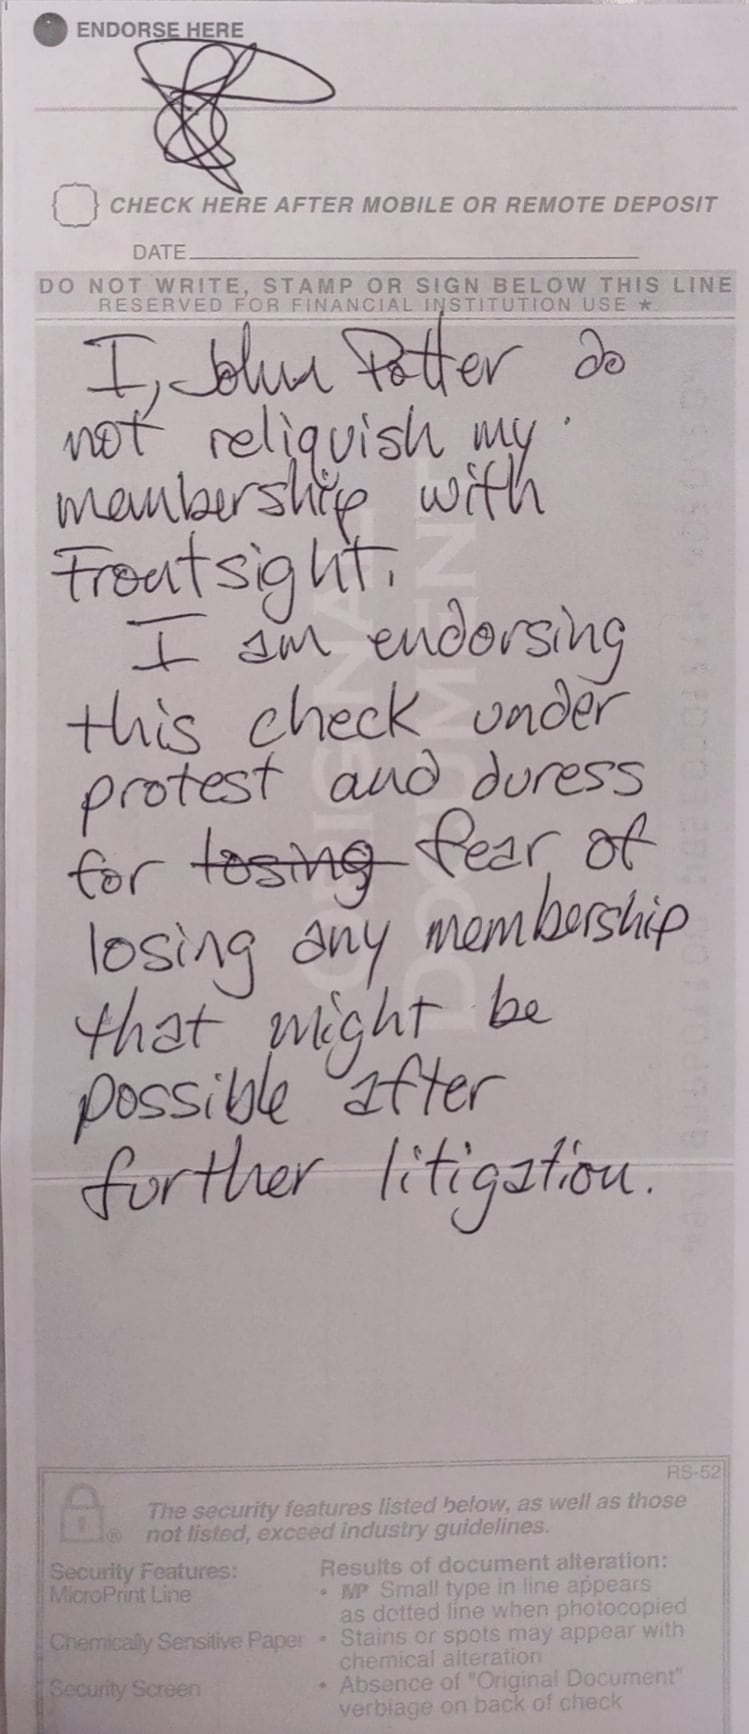 ENDORSE HERE
CHECK HERE AFTER MOBILE OR REMOTE DEPOSIT
DATE
DO NOT WRITE, STAMP OR SIGN BELOW THIS LINE
RESERVED FOR FINANCIAL INSTITUTION USE *
I, John Potter do
not reliquish my
membership with
Frontsight.
I am endorsing
this check under
protest and duress
for losing fear of
losing any membership
that might be
possible after
further litigation.
ORIGINAL
DOCUMENT
RS-52
The security features listed below, as well as those
not listed, exceed industry guidelines.
Security Features:
MicroPrint Line
Chemically Sensitive Paper
Security Screen
Results of document alteration:
• MP Small type in line appears
as dotted line when photocopied
• Stains or spots may appear with
chemical alteration
• Absence of "Original Document"
verbiage on back of check